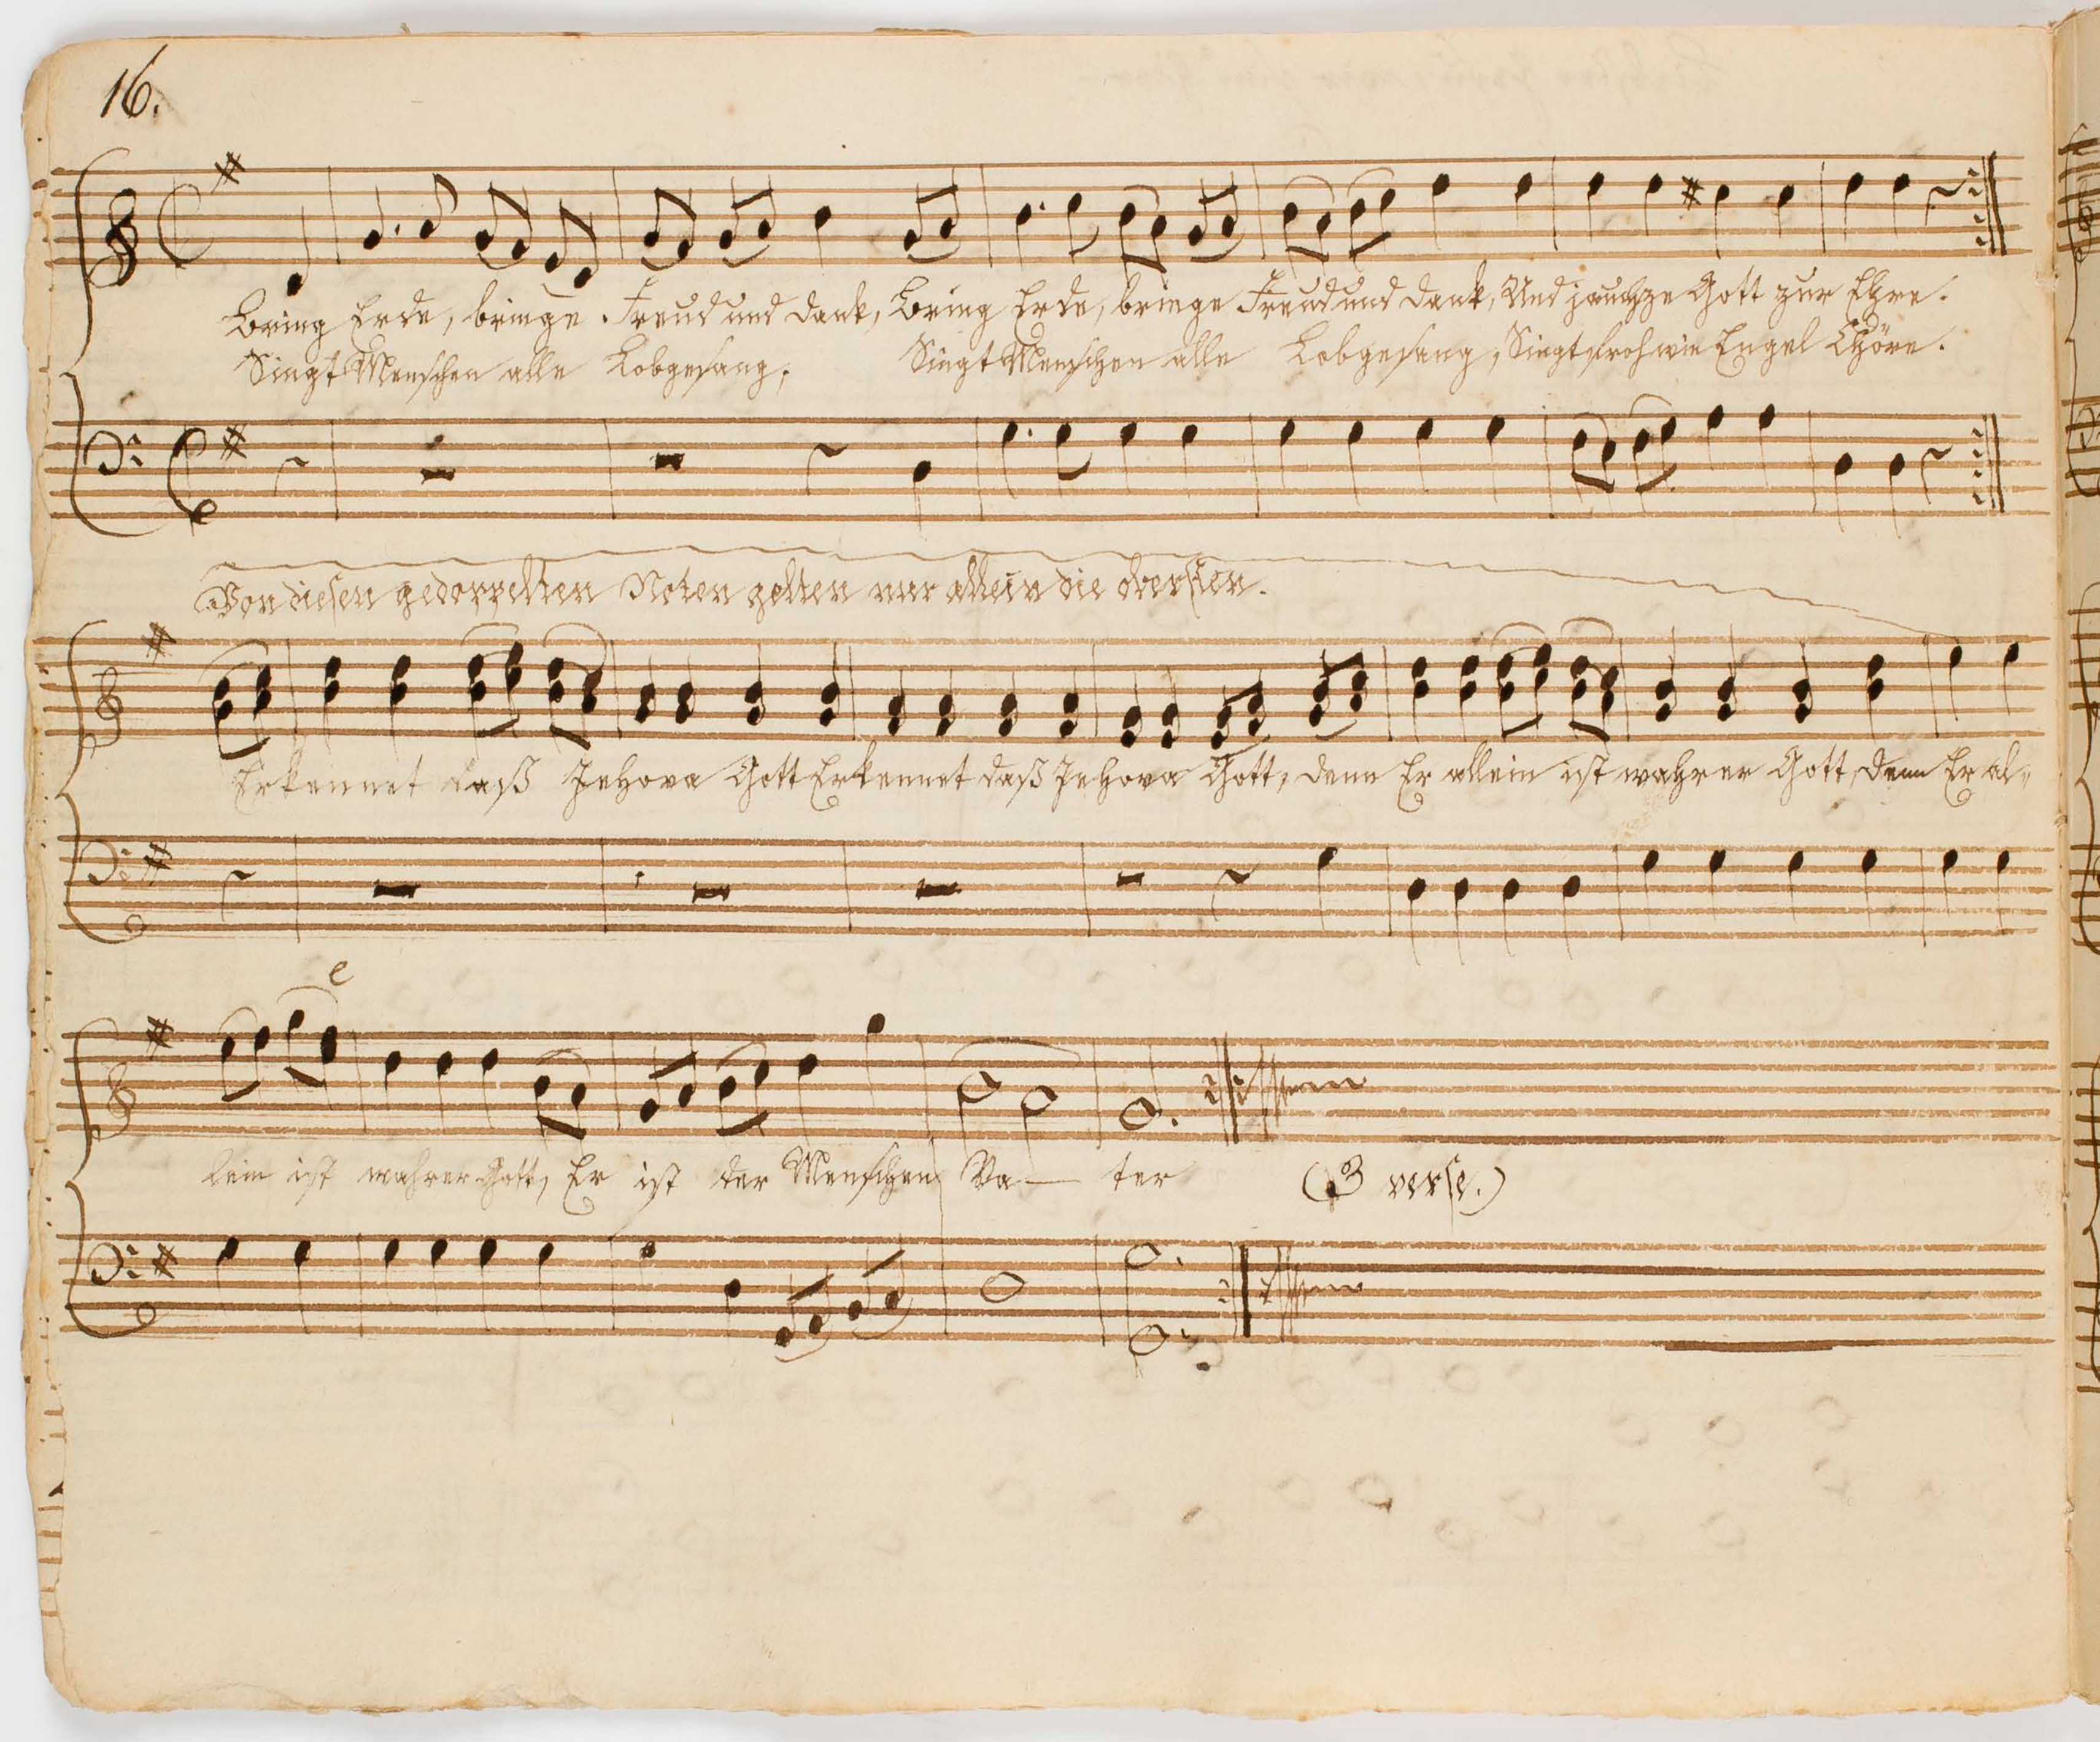 16.
Bring Erde, bringe Freud und Dank, Bring Erde, bringe Freud und Dank, Und jauchze Gott zur Ehre.
Singt Menschen alle Lobgesang; Singt Menschen alle Lobgesang, Singt froh wie Engel Chöre.
Von diesen gedoppelten Noten gelten nur allein die obersten.
Erkennet daß Jehova Gott Erkennet daß Jehova Gott, denn Er allein ist wahrer Gott, denn Er al=
e
lein ist wahrer Gott, Er ist der Menschen Va— ter (3 verse.)